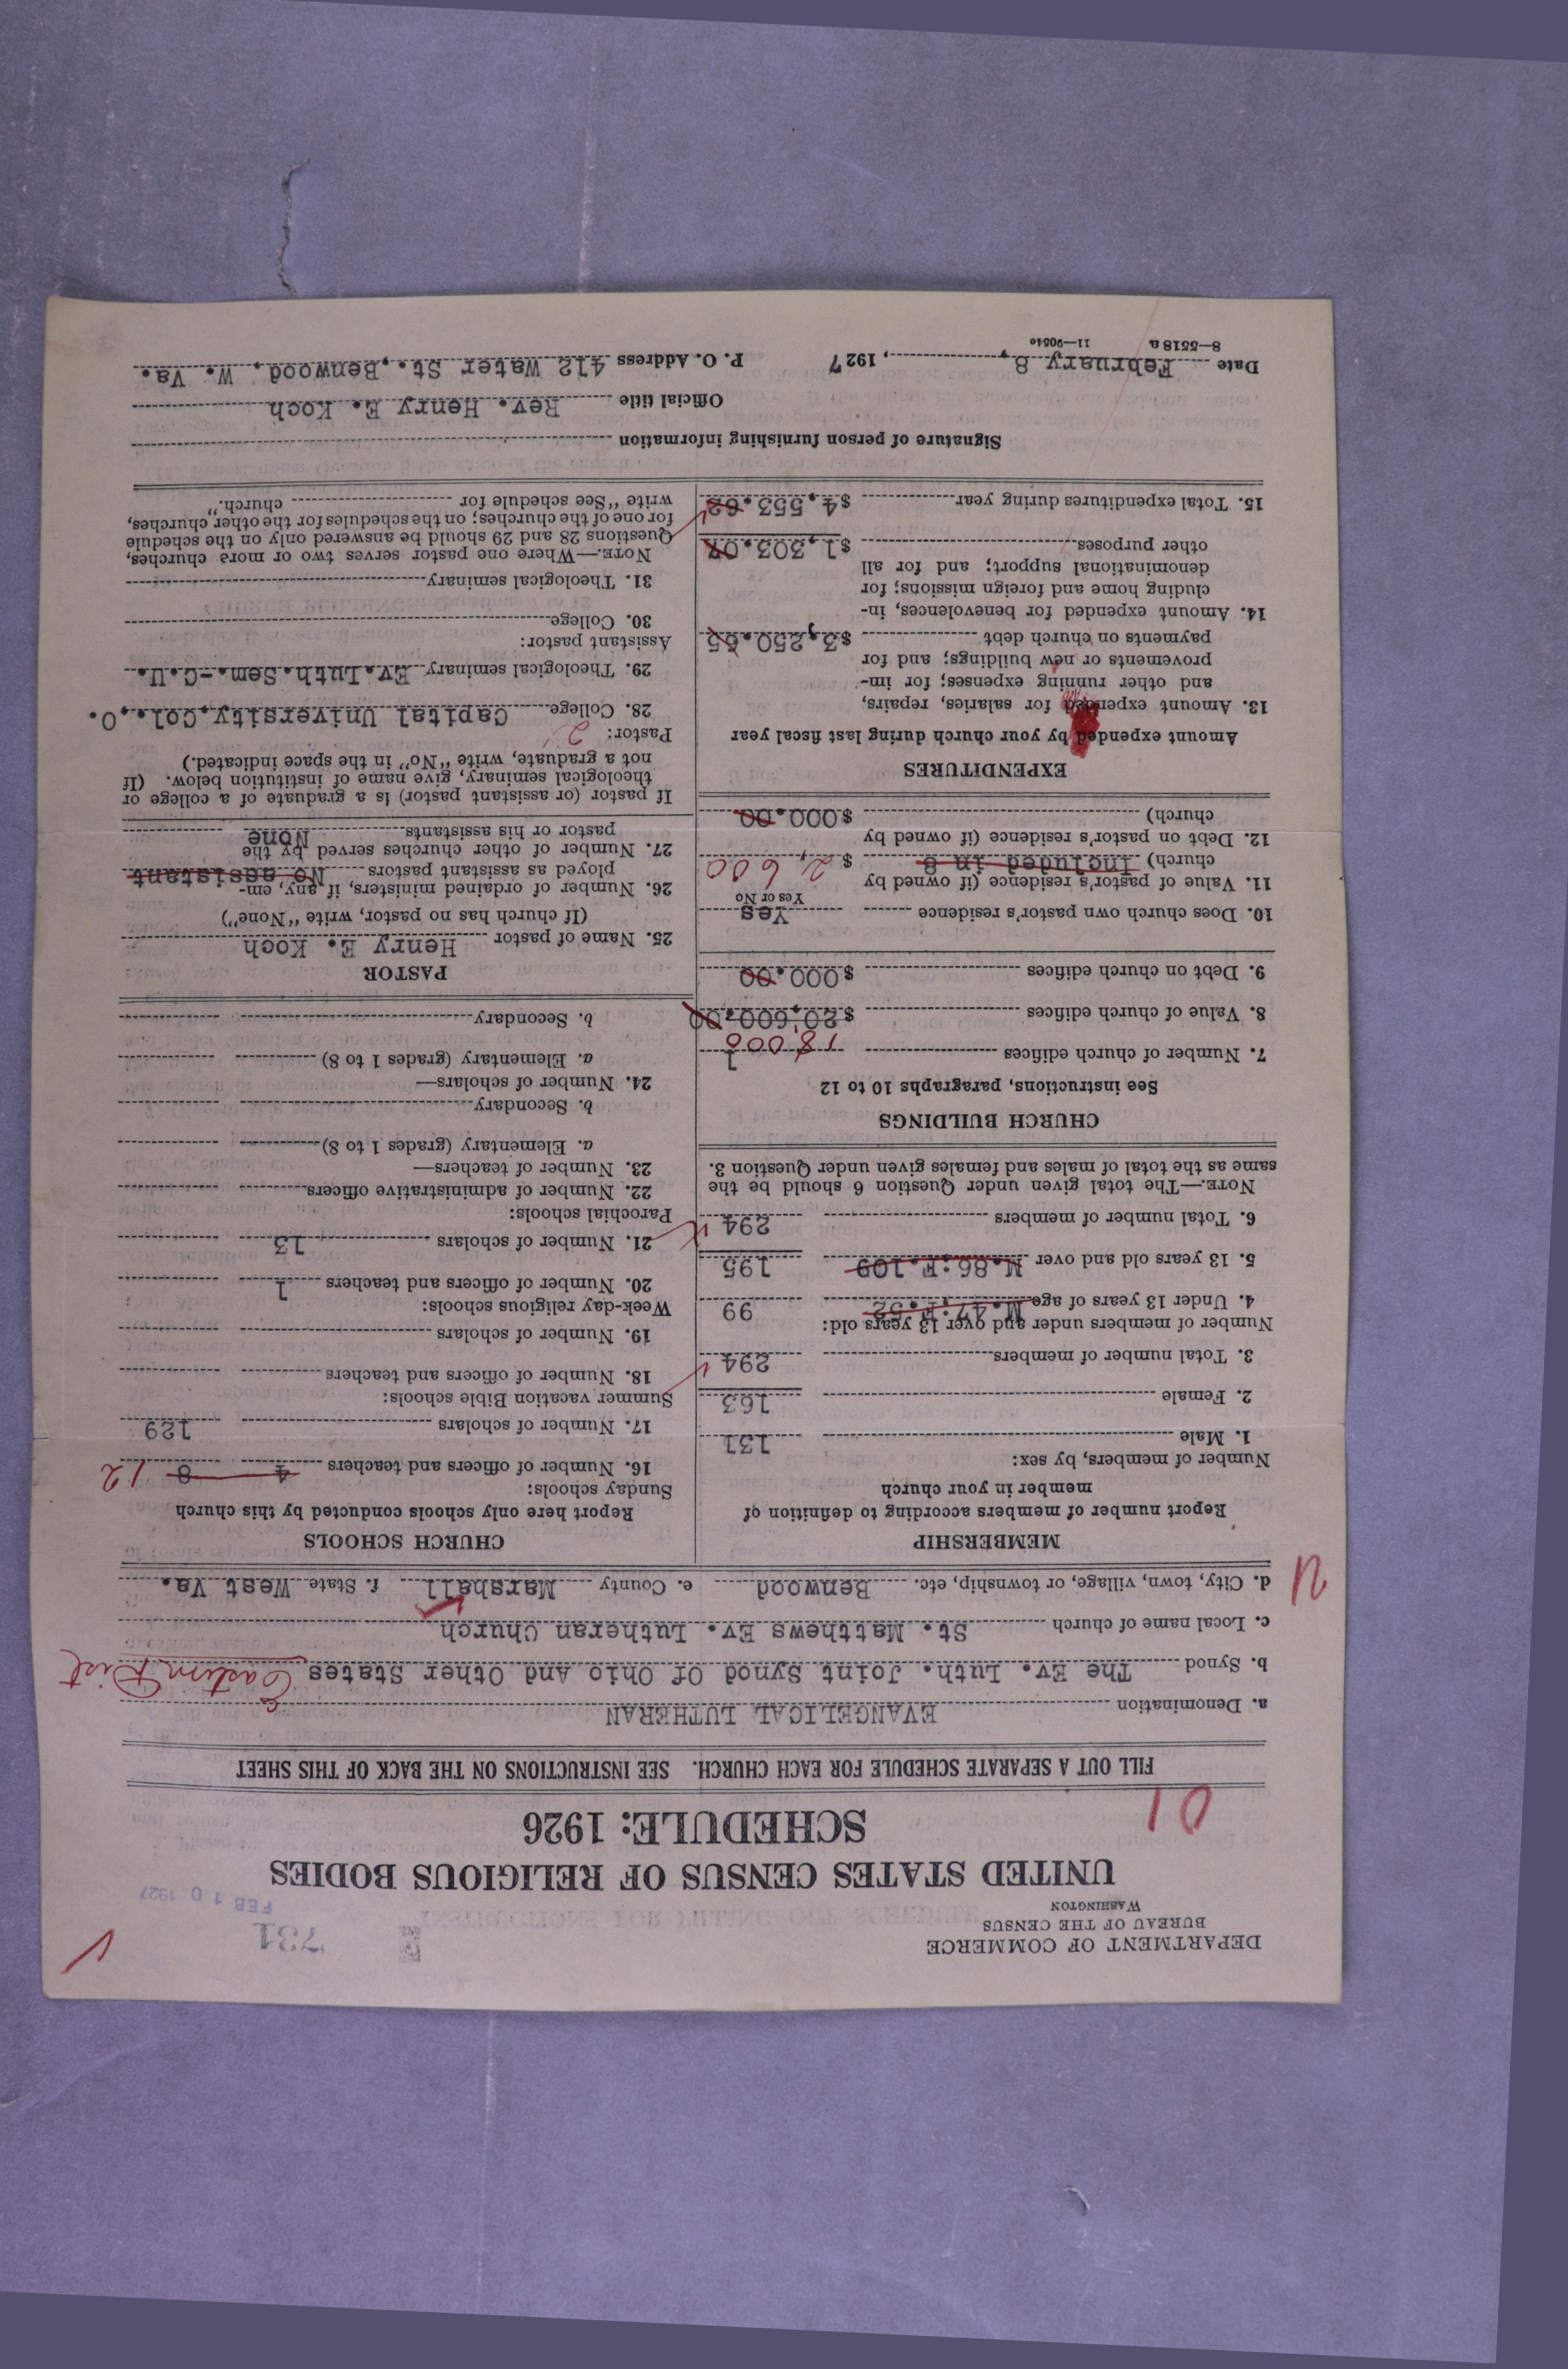 DEPARTMENT OF COMMERCE
BUREAU OF THE CENSUS
WASHINGTON
731
FEB 10 1927
UNITED STATES CENSUS OF RELIGIOUS BODIES
SCHEDULE: 1926
01
FILL OUT A SEPARATE SCHEDULE FOR EACH CHURCH. SEE INSTRUCTIONS ON THE BACK OF THIS SHEET
a. Denomination EVANGELICAL LUTHERAN
b. Synod The Ev. Luth. Joint Synod Of Ohio And Other States Eastern Dist
c. Local name of church St. Matthews Ev. Lutheran Church
d. City, town, village, or township, etc. Benwood e. County Marshall f. State West Va.
U
MEMBERSHIP
Report number of members according to definition of
member in your church
Number of members, by sex:
1. Male 131
2. Female 163
3. Total number of members 294
Number of members under and over 13 years old:
4. Under 13 years of age M.47:F.52 99
5. 13 years old and over M.86:F.109 195
6. Total number of members 294
NOTE.—The total given under Question 6 should be the
same as the total of males and females given under Question 3.
CHURCH BUILDINGS
See instructions, paragraphs 10 to 12
7. Number of church edifices 1
18,000
8. Value of church edifices $20,600.00
9. Debt on church edifices $000.00
10. Does church own pastor's residence Yes
Yes or No
11. Value of pastor's residence (if owned by
church) Included in 8 $ 2,600
12. Debt on pastor's residence (if owned by
church) $000.00
EXPENDITURES
Amount expended by your church during last fiscal year
13. Amount expended for salaries, repairs,
and other running expenses; for im-
provements or new buildings; and for
payments on church debt $3,250.55
14. Amount expended for benevolences, in-
cluding home and foreign missions; for
denominational support; and for all
other purposes $1,303.07
15. Total expenditures during year $4,553.62
CHURCH SCHOOLS
Report here only schools conducted by this church
Sunday schools:
16. Number of officers and teachers 4 8 12
17. Number of scholars 129
Summer vacation Bible schools:
18. Number of officers and teachers
19. Number of scholars
Week-day religious schools:
20. Number of officers and teachers 1
21. Number of scholars 13
Parochial schools:
22. Number of administrative officers
23. Number of teachers—
a. Elementary (grades 1 to 8)
b. Secondary
24. Number of scholars—
a. Elementary (grades 1 to 8)
b. Secondary
PASTOR
25. Name of pastor Henry E. Koch
(If church has no pastor, write "None")
26. Number of ordained ministers, if any, em-
ployed as assistant pastors No assistant
27. Number of other churches served by the
pastor or his assistants None
If pastor (or assistant pastor) is a graduate of a college or
theological seminary, give name of institution below. (If
not a graduate, write "No" in the space indicated.)
Pastor: 2
28. College Capital University,Col.,O.
29. Theological seminary Ev.Luth.Sem.-C.U.
Assistant pastor:
30. College
31. Theological seminary
NOTE.—Where one pastor serves two or more churches,
Questions 28 and 29 should be answered only on the schedule
for one of the churches; on the schedules for the other churches,
write "See schedule for church."
Signature of person furnishing information
Official title Rev. Henry E. Koch
Date February 8, 1927 P. O. Address 412 Water St.,Benwood, W. Va.
8—5518 a 11—9054e